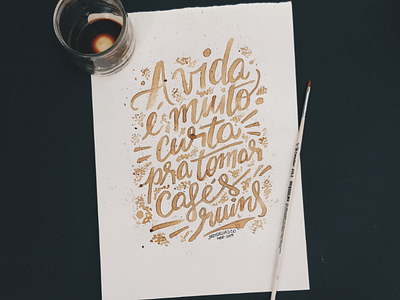 A vida
é muito
curta
pra tomar
cafés
ruins